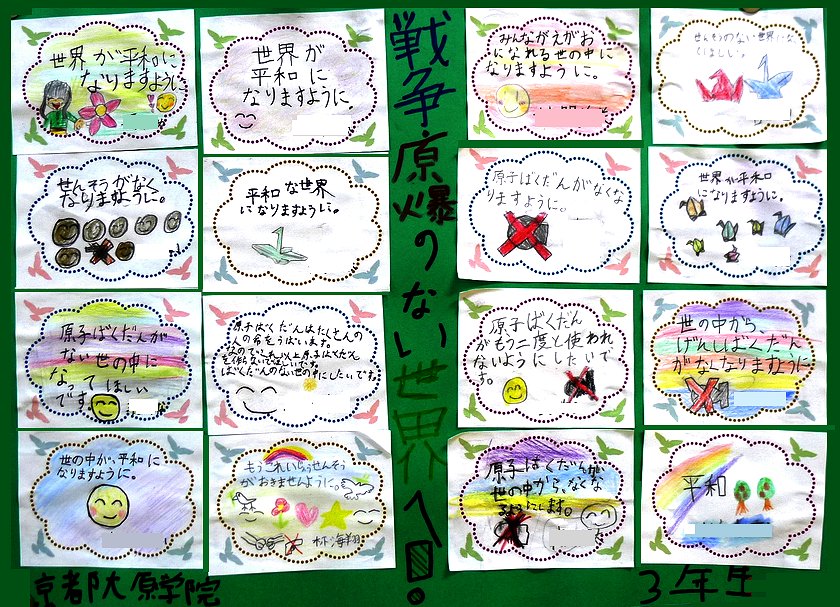 世界が平和に
なりますように
世界が
平和に
なりますように。
戦争・原爆のない世界へ!
みんながえがお
になれる世の中に
なりますように。
せんそうがなく
なりますように。
平和な世界
になりますように。
原子ばくだんがなくな
りますように。
世界が平和
になりますように。
原子ばくだんが
ない世の中に
なって ほしい
です。
原子ばくだんはたくさんの
人の命をうばいます。
ばくだんのない世の中にしたいです。
原子ばくだん
がもう二度と使われ
ないようにしたいで
す。
世の中から、
げんしばくだん
がなくなりますように
世の中が、平和に
なりますように。
もうこれいじょうせんそう
がおきませんように。
原子ばくだんが
世の中から、なくな
平和
京都大原学院
3年生